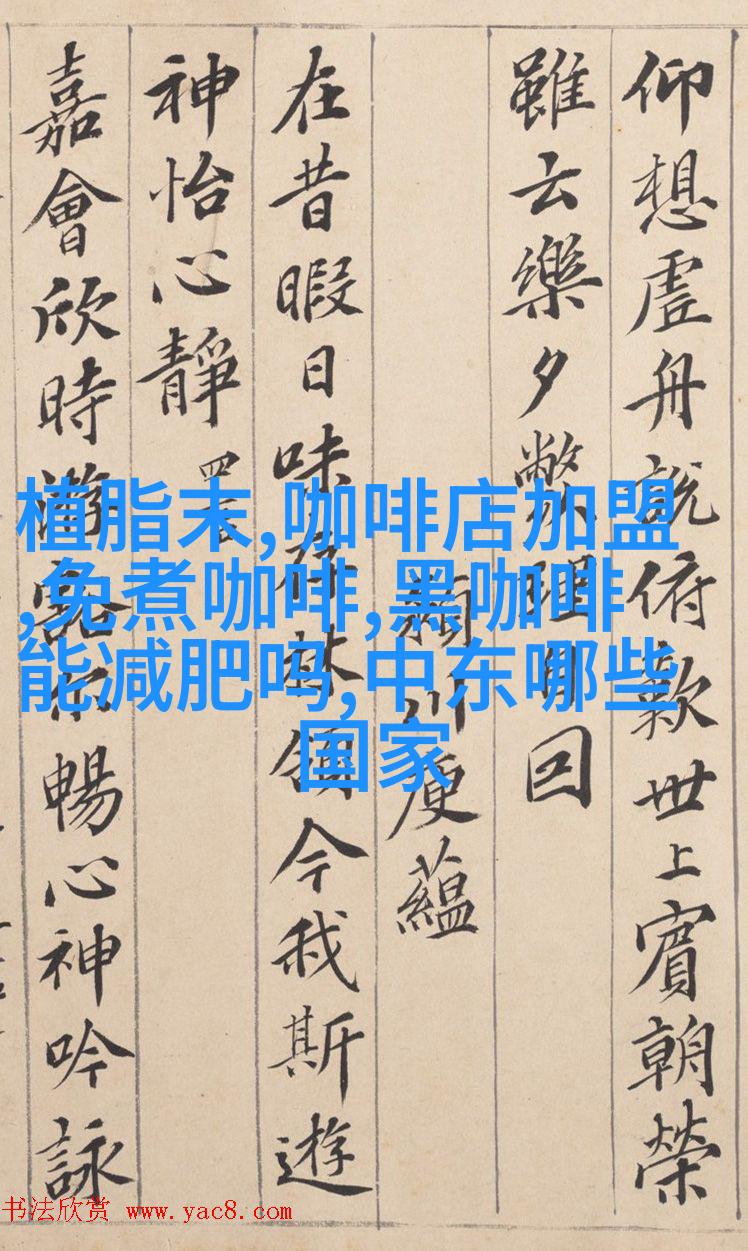 仰想虚舟說俯歎世上賓朝榮
雖云樂夕斃理自回
潁川庾蘊
在昔暇日味存林嶺今我斯遊
神怡心靜
嘉會欣時遊豁尔暢心神吟詠
植脂末,咖啡店加盟
,免煮咖啡,黑咖啡
能减肥吗,中东哪些
国家
书法欣赏 www.yac8.com